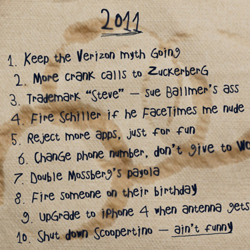 2011
1. Keep the Verizon myth going
2. More crank calls to ZuckerberG
3. Trademark "Steve" – sue Ballmer's ass
4. Fire Schiller if he FaceTimes me nude
5. Reject more apps, just for fun
6. ChanGe phone number, don't give to Wo
7. Double Mossberg's payola
8. Fire someone on their birthday
9. UpGrade to iPhone 4 when antenna gets
10. Shut down Scoopertino – ain't funny